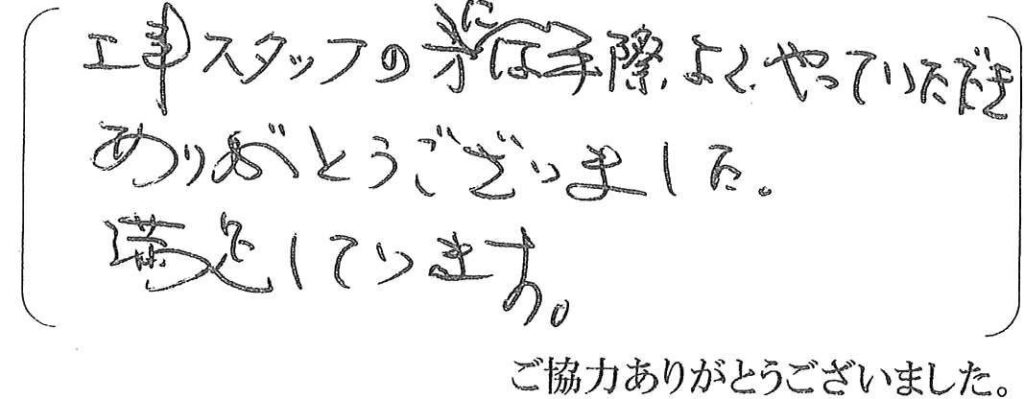 工事スタッフの方には手際よくやっていただき
ありがとうございました。
満足しています。
ご協力ありがとうございました。